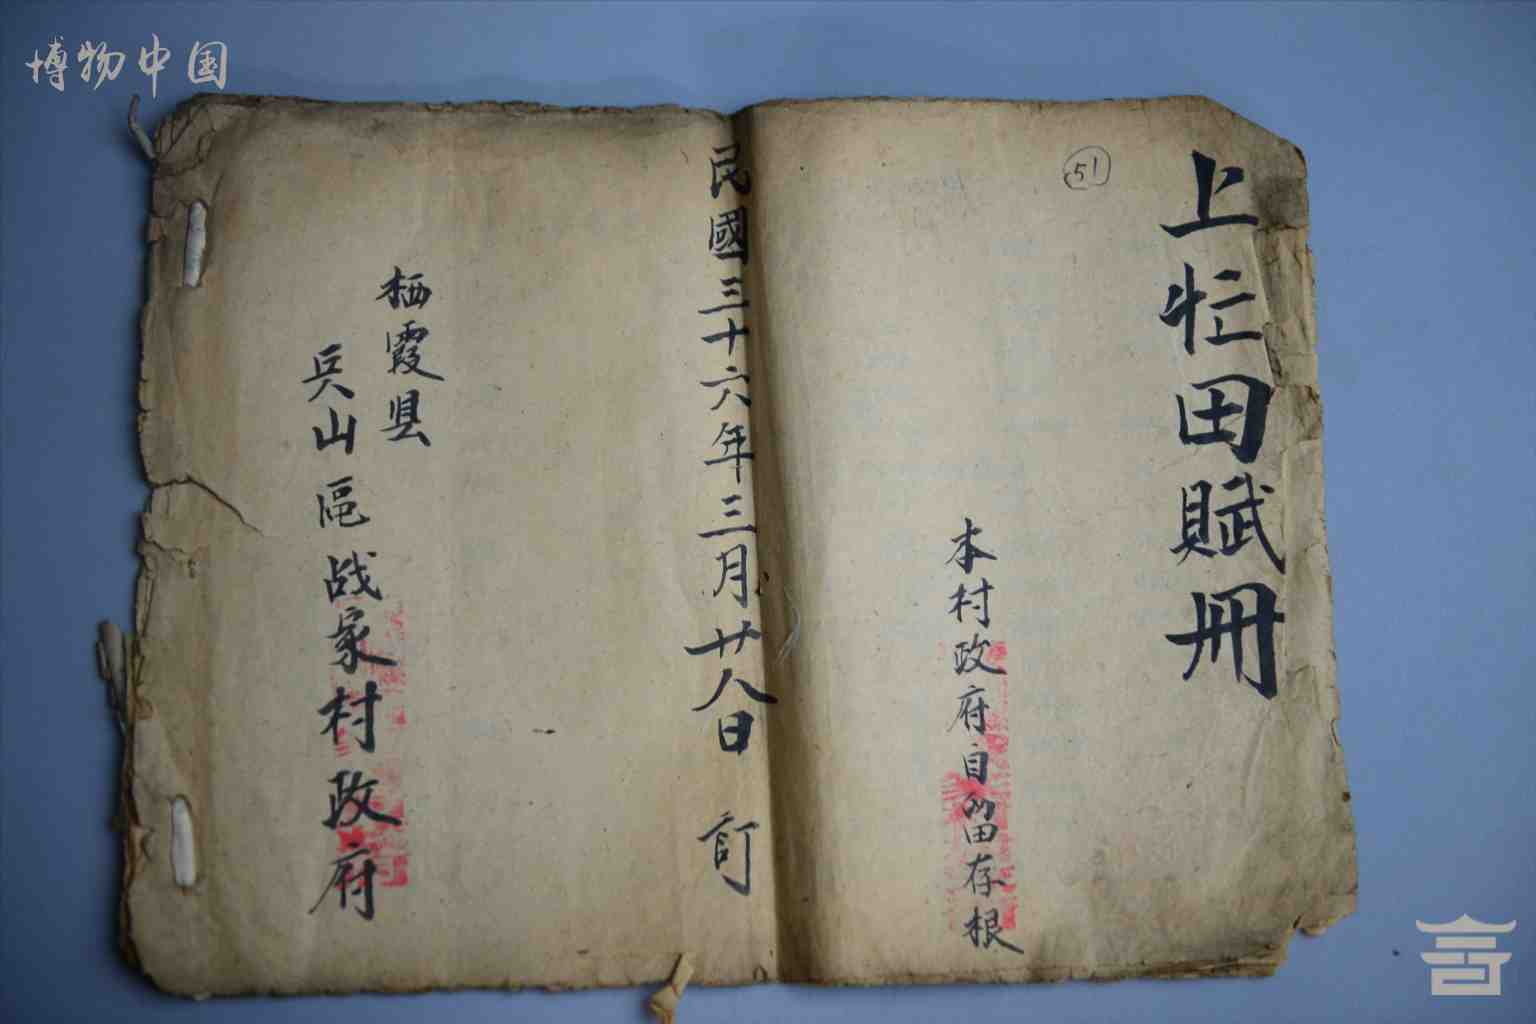 博物中国
上忙田賦冊
51
本村政府自留存根
民國三十六年三月廿八日 訂
栖霞县
兵山區战家村政府